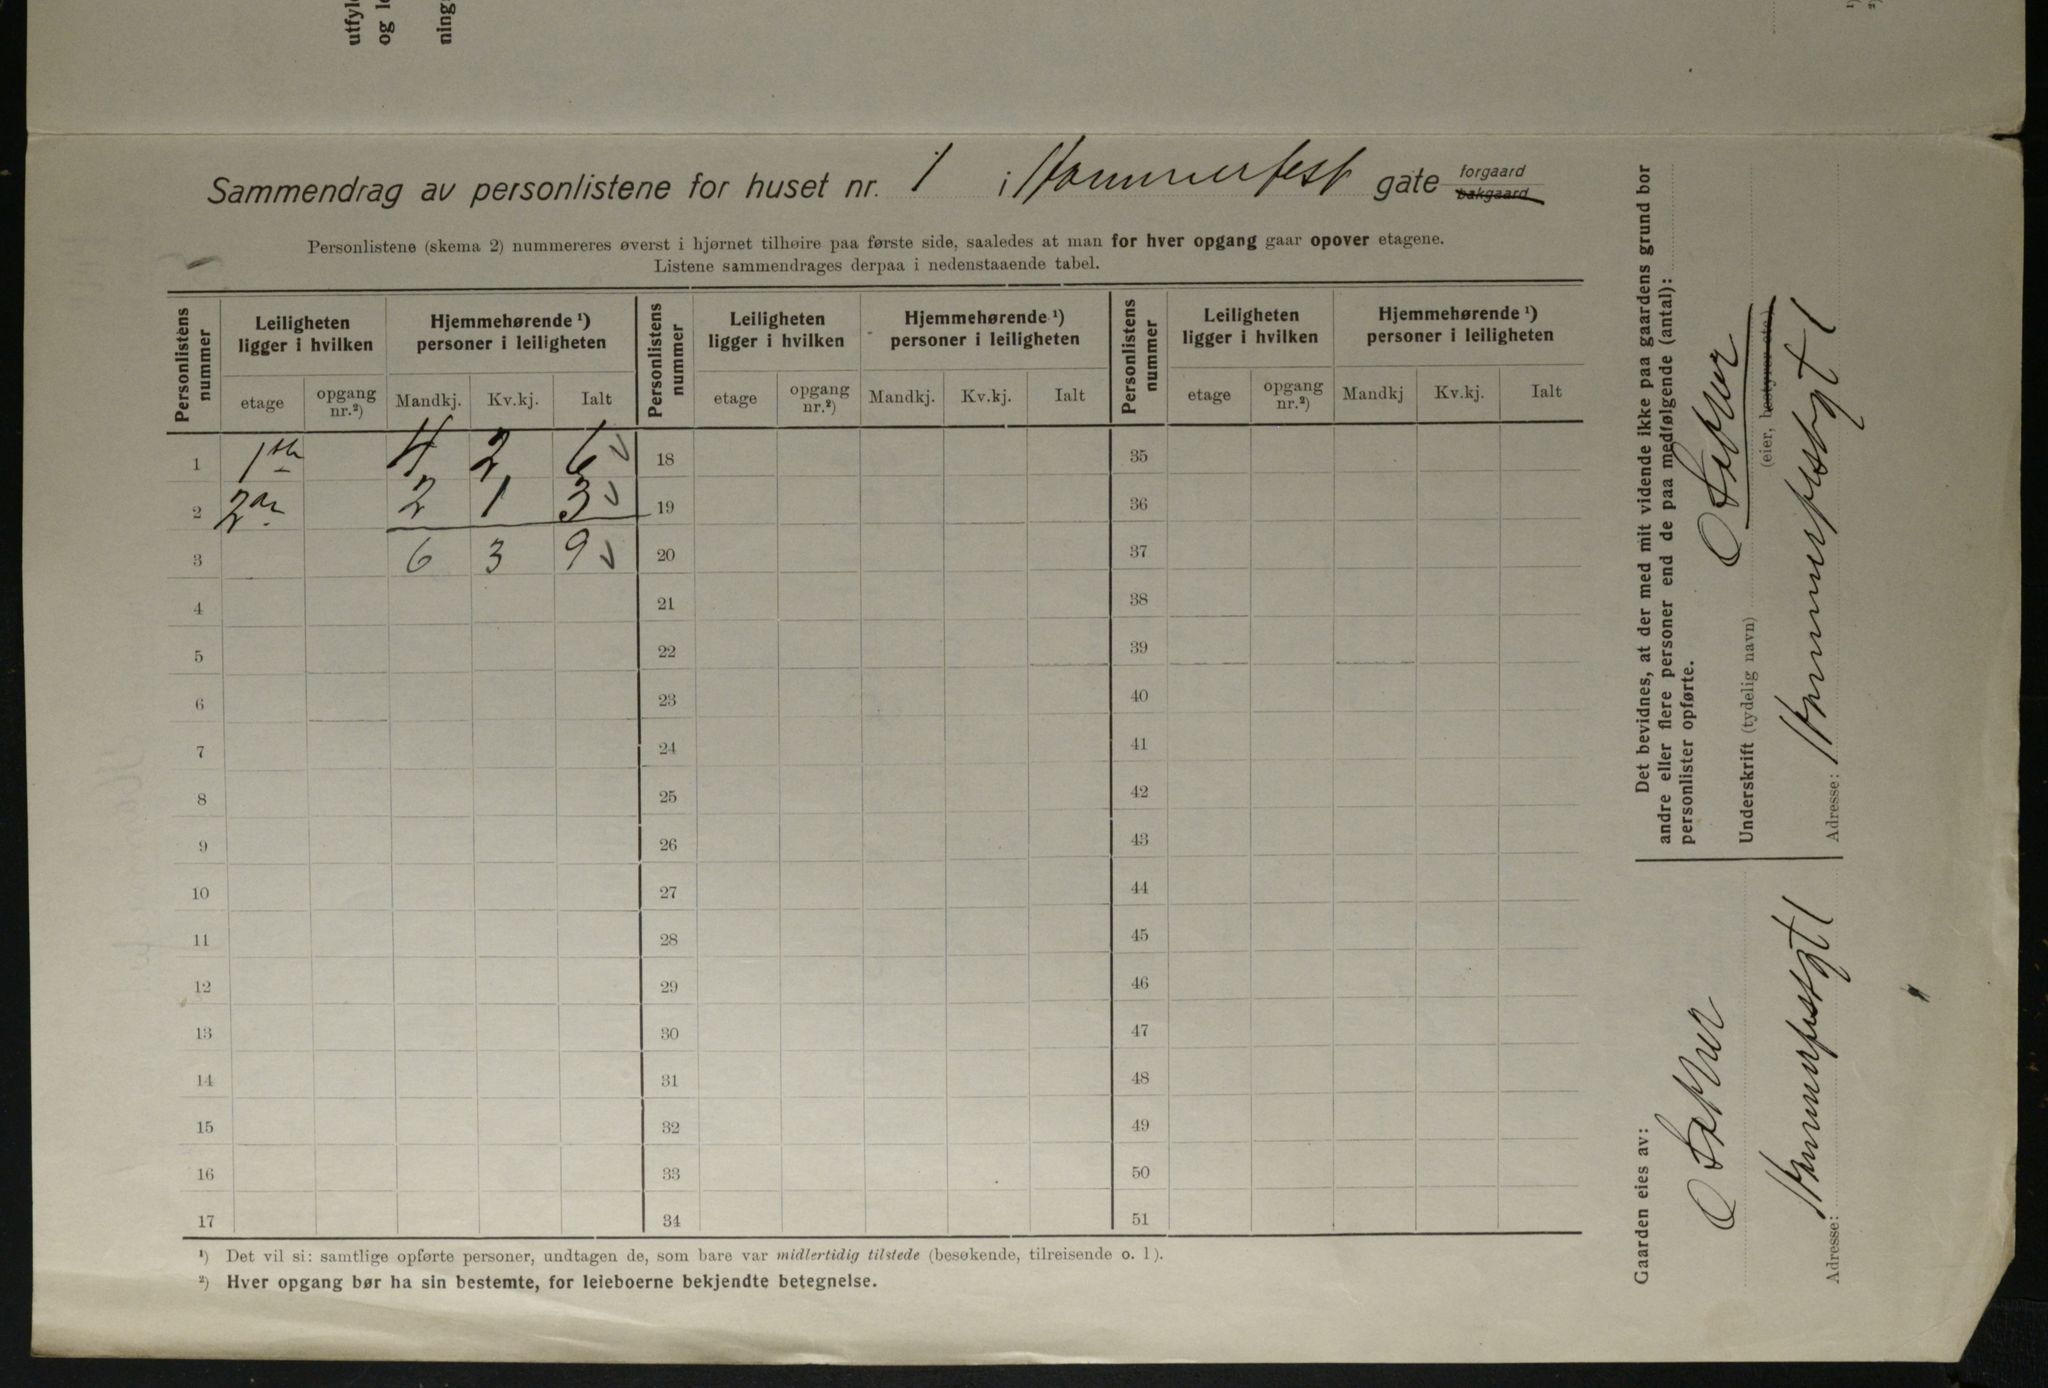 utfyl
og l
ning
1)
2)
Sammendrag av personlistene for huset nr. 1 i Hammerfest gate forgaard bakgaard
Personlistene (skema 2) nummereres øverst i hjørnet tilhøire paa første side, saaledes at man for hver opgang gaar opover etagene.
Listene sammendrages derpaa i nedenstaaende tabel.
Personlistens nummer Leiligheten ligger i hvilken Hjemmehørende 1) personer i leiligheten Personlistens nummer Leiligheten ligger i hvilken Hjemmehørende 1) personer i leiligheten Personlistens nummer Leiligheten ligger i hvilken Hjemmehørende 1) personer i leiligheten
etage opgang nr.2) Mandkj. Kv.kj. Ialt etage opgang nr.2) Mandkj. Kv.kj. Ialt etage opgang nr.2) Mandkj Kv.kj. Ialt
1 1ste 4 2 6 18 35
2 2den 2 1 3 19 36
3 6 3 9 20 37
4 21 38
5 22 39
6 23 40
7 24 41
8 25 42
9 26 43
10 27 44
11 28 45
12 29 46
13 30 47
14 31 48
15 32 49
16 33 50
17 34 51
1) Det vil si: samtlige opførte personer, undtagen de, som bare var midlertidig tilstede (besøkende, tilreisende o. l).
2) Hver opgang bør ha sin bestemte, for leieboerne bekjendte betegnelse.
Det bevidnes, at der med mit vidende ikke paa gaardens grund bor
andre eller flere personer end de paa medfølgende (antal):
personlister opførte.
Underskrift (tydelig navn)
(eier, bestyrer etc.)
Adresse: Hammerfestgt 1
Gaarden eies av:
Adresse: Hammerfestgt 1